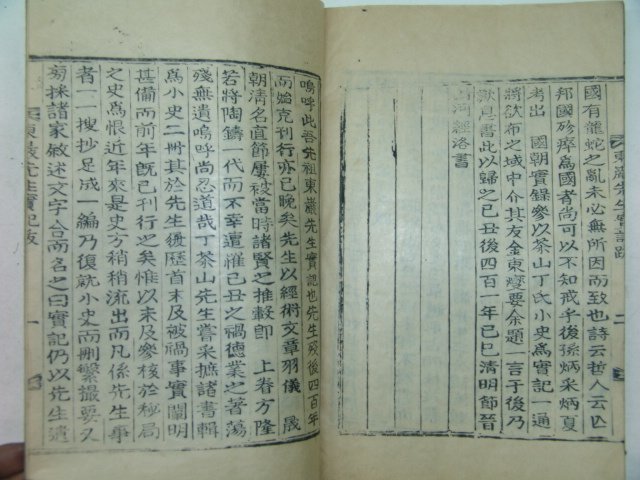 東巖先生實記跋 二
國有龍蛇之亂未必無所因而致也詩云哲人云亡
邦國殄瘁爲國者尚可以不知戒乎後孫炳采炳夏
考出 國朝實錄參以茶山丁氏小史爲實記一通
將欲布之域中介其友金東燮要余題一言于後乃
歎息書此以歸之己丑後四百一年己巳清明節晉
山河經洛書
嗚呼此吾先祖東巖先生實記也先生歿後四百年
而始克刊行亦已晚矣先生以經術文章羽儀 晟
朝清名直節屢被當時諸賢之推轂卽 上眷方隆
若將陶鑄一代而不幸遭罹己丑之禍德業之著蕩
殘無遺嗚呼尚忍道哉丁茶山先生嘗采摭諸書輯
爲小史二冊其於先生履歷首末及被禍事實闡明
甚備而前年旣已刊行之矣惟以未及參核於秘局
之史爲恨近年來是史方稍稍流出而凡係先生事
者一一搜抄足成一編乃復就小史而刪繁撮要又
旁採諸家敘述文字合而名之曰實記仍以先生遺
東巖先生實記跋 一